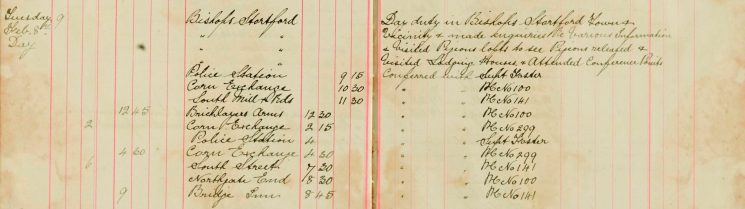 Tuesday 9 Bishops Stortford Day duty in Bishops Stortford Town &
Feb. 8th " " Vicinity & made enquiries re Various Information
Day " " & Visited Pigeons lofts to see Pigeons released &
" Visited Lodging Houses, & Attended Conference Points
Police Station 9 15 Conferred with Supt Foster
Corn Exchange 10 30 " " PC No 100
South Mill Rds 11 30 " " PC No 141
12 45 Bricklayers Arms 12 30 " " PC No 100
2 Corn Exchange 2 15 " " PC No 299
Police Station 4 " " Supt Foster
4 30 Corn Exchange 4 30 " " PC No 299
6 South Street 7 30 " " PC No 141
Northgate End 8 30 " " PC No 100
9 Bridge Inn 8 45 " " PC No 141